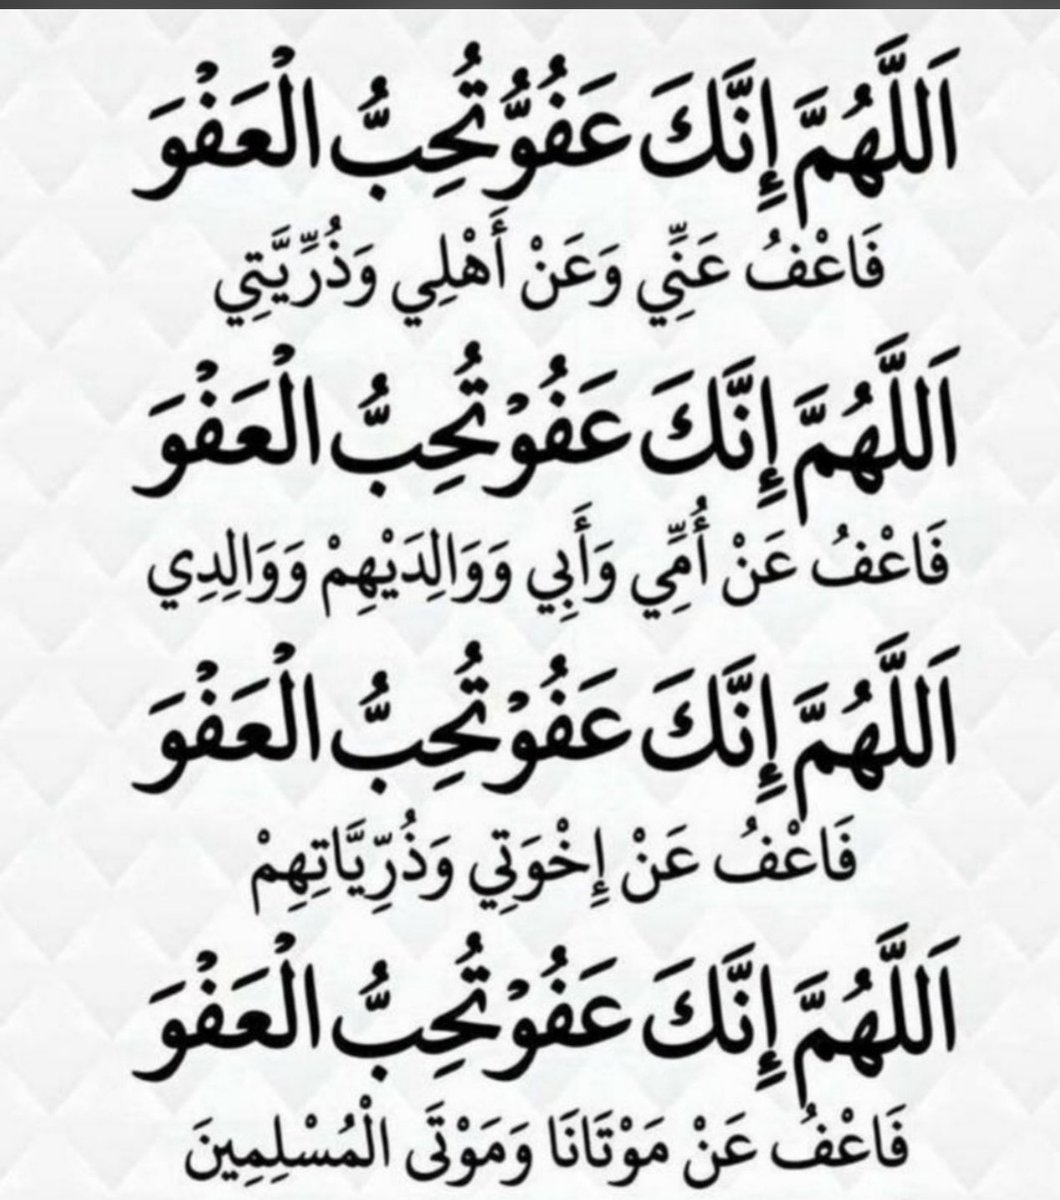 اَللَّهُمَّ إِنَّكَ عَفُوٌّ تُحِبُّ الْعَفْوَ
فَاعْفُ عَنِّي وَعَنْ أَهْلِي وَذُرِّيَّتِي
اَللَّهُمَّ إِنَّكَ عَفُوْ تُحِبُّ الْعَفْوَ
فَاعْفُ عَنْ أُمِّي وَأَبِي وَوَالِدَيْهِمْ وَوَالِدِي
اَللَّهُمَّ إِنَّكَ عَفُوْ تُحِبُّ الْعَفْوَ
فَاعْفُ عَنْ إِخْوَتِي وَذُرِّيَّاتِهِمْ
اَللَّهُمَّ إِنَّكَ عَفُوْ تُحِبُّ الْعَفْوَ
فَاعْفُ عَنْ مَوْتَانَا وَمَوْتَى الْمُسْلِمِينَ